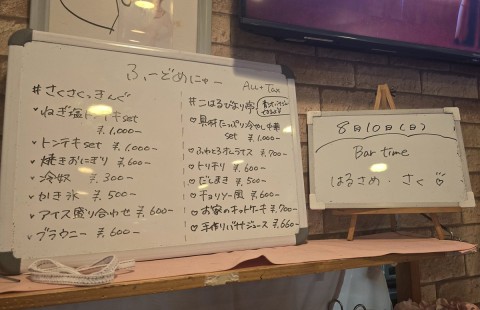 ふーどめにゅー
ALL + Tax
#さくさくっきんぐ
ねぎ塩トンテキset
¥.1,000-
トンテキset ¥.1,000-
焼きおにぎり ¥.600-
冷奴 ¥.300-
かき氷 ¥.500-
アイス盛り合わせ ¥.600-
ブラウニー ¥.600-
#こはるびより亭
♡具材たっぷり冷やし中華
set ¥.1,000-
♡ふわとろオムライス ¥.700-
♡トリチリ ¥.600-
♡だしまき ¥.500-
♡チョリソー風 ¥.600-
♡お家のホットケーキ ¥.700-
♡手作りバナナジュース ¥.660-
8月10日(日)
Bar time
はるさめ・さく♡